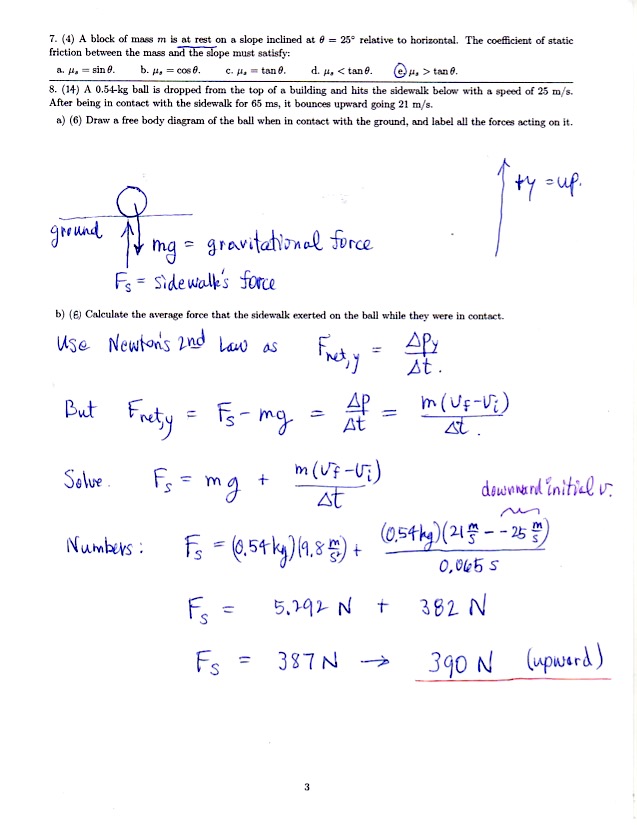 7. (4) A block of mass m is at rest on a slope inclined at θ = 25° relative to horizontal. The coefficient of static
friction between the mass and the slope must satisfy:
a. μₛ = sin θ. b. μₛ = cos θ. c. μₛ = tan θ. d. μₛ < tan θ. e. μₛ > tan θ.
8. (14) A 0.54-kg ball is dropped from the top of a building and hits the sidewalk below with a speed of 25 m/s.
After being in contact with the sidewalk for 65 ms, it bounces upward going 21 m/s.
a) (6) Draw a free body diagram of the ball when in contact with the ground, and label all the forces acting on it.
+y = up.
ground
mg = gravitational force
Fs = sidewalk's force
b) (8) Calculate the average force that the sidewalk exerted on the ball while they were in contact.
Use Newton's 2nd Law as Fnet,y = ΔPy / Δt.
But Fnet,y = Fs - mg = ΔP / Δt = m(Vf - Vi) / Δt.
Solve. Fs = mg + m(Vf - Vi) / Δt
downward initial v.
Numbers: Fs = (0.54 kg)(9.8 m/s²) + (0.54 kg)(21 m/s - -25 m/s) / 0.065 s
Fs = 5.292 N + 382 N
Fs = 387 N → 390 N (upward)
3